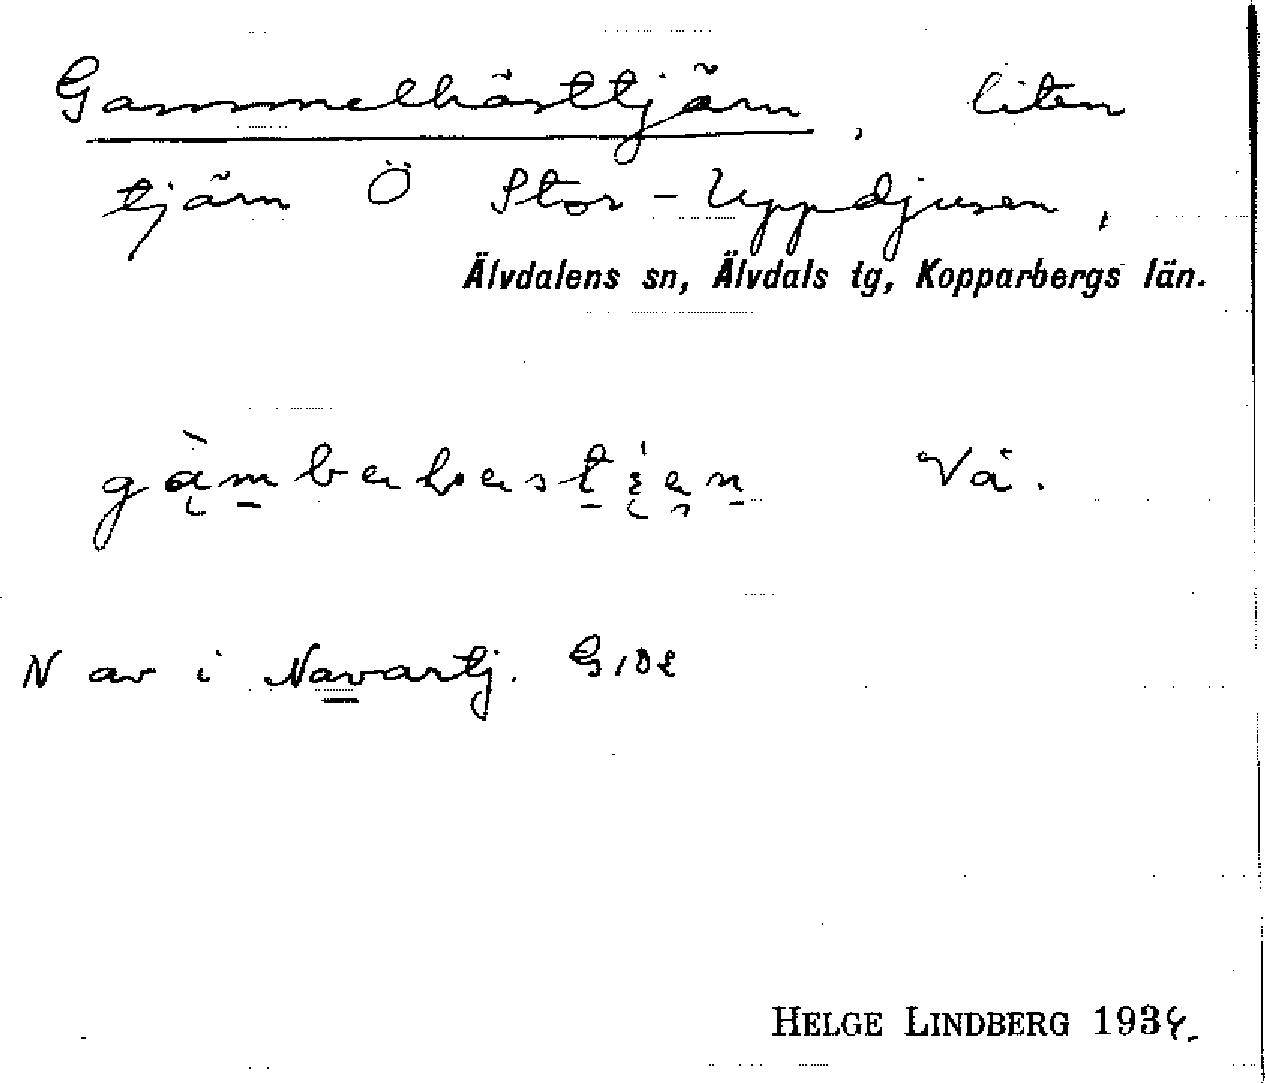 Gammelhästtjärn, liten
tjärn Ö Stor-Uppdjusen,
Älvdalens sn, Älvdals tg, Kopparbergs län.
Vä.
N av i Navartj. G102
HELGE LINDBERG 1934